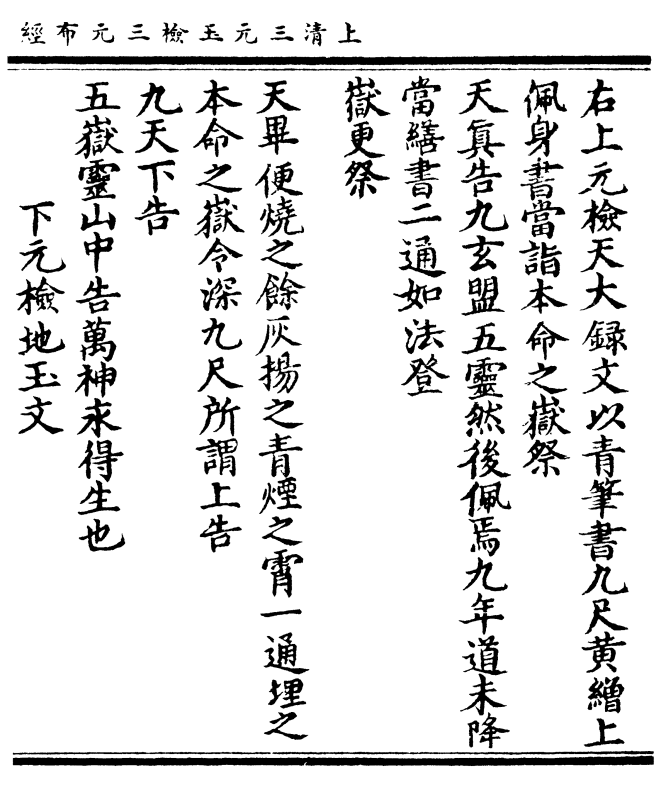 上清三元玉檢三元布經
右上元檢天大録文以青筆書九尺黄繒上
佩身書當詣本命之嶽祭
天真告九玄盟五靈然後佩焉九年道未降
當繕書二通如法登
嶽更祭
天畢便燒之餘灰揚之青煙之霄一通埋之
本命之嶽令深九尺所謂上告
九天下告
五嶽靈山中告萬神求得生也
下元檢地玉文